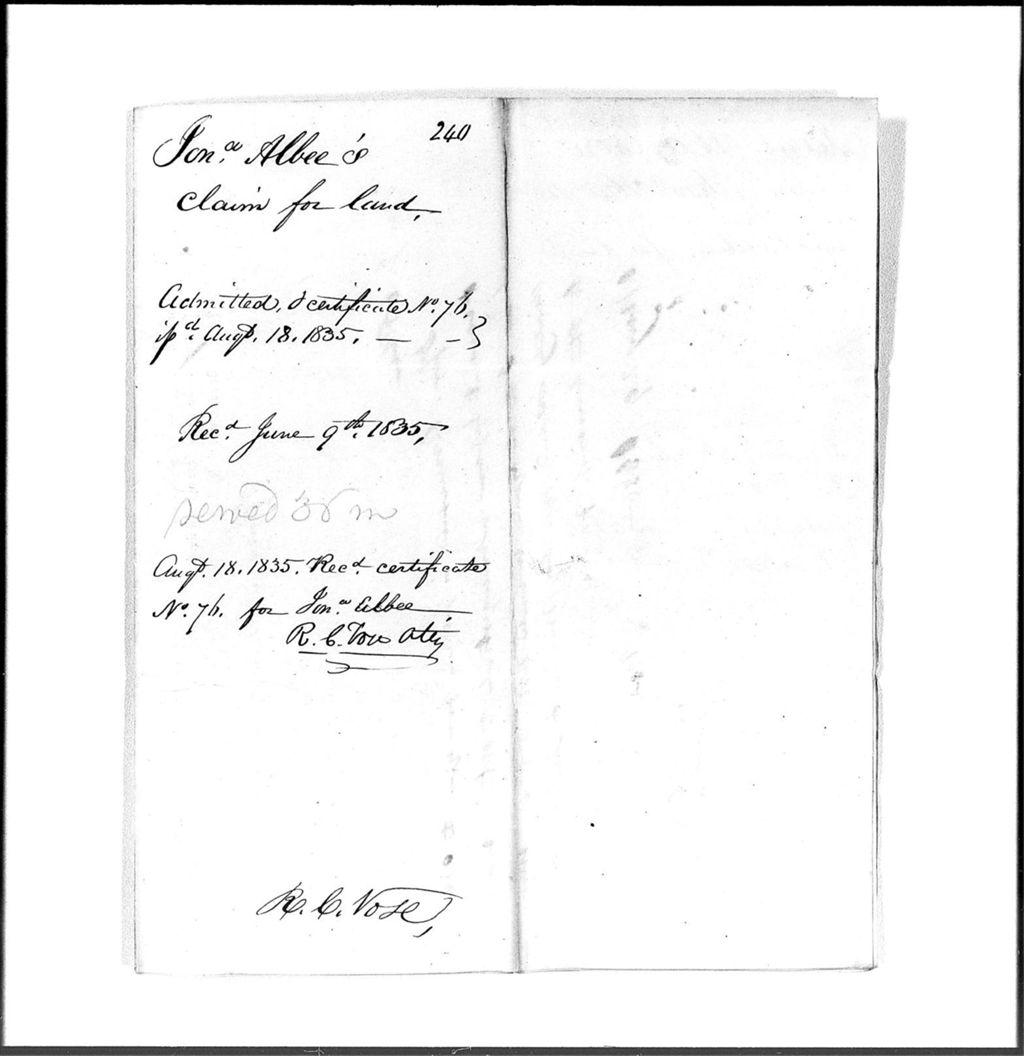 240
Jonª. Albee's
claim for land,
Admitted, & certificate No. 76.
isd. Augt. 18. 1835. — —}
Recd. June 9th. 1835,
served 36 m
Augt. 18. 1835. Recd. certificate
No. 76. for Jonª. Albee
R. C. Vose Atty
R. C. Vose,